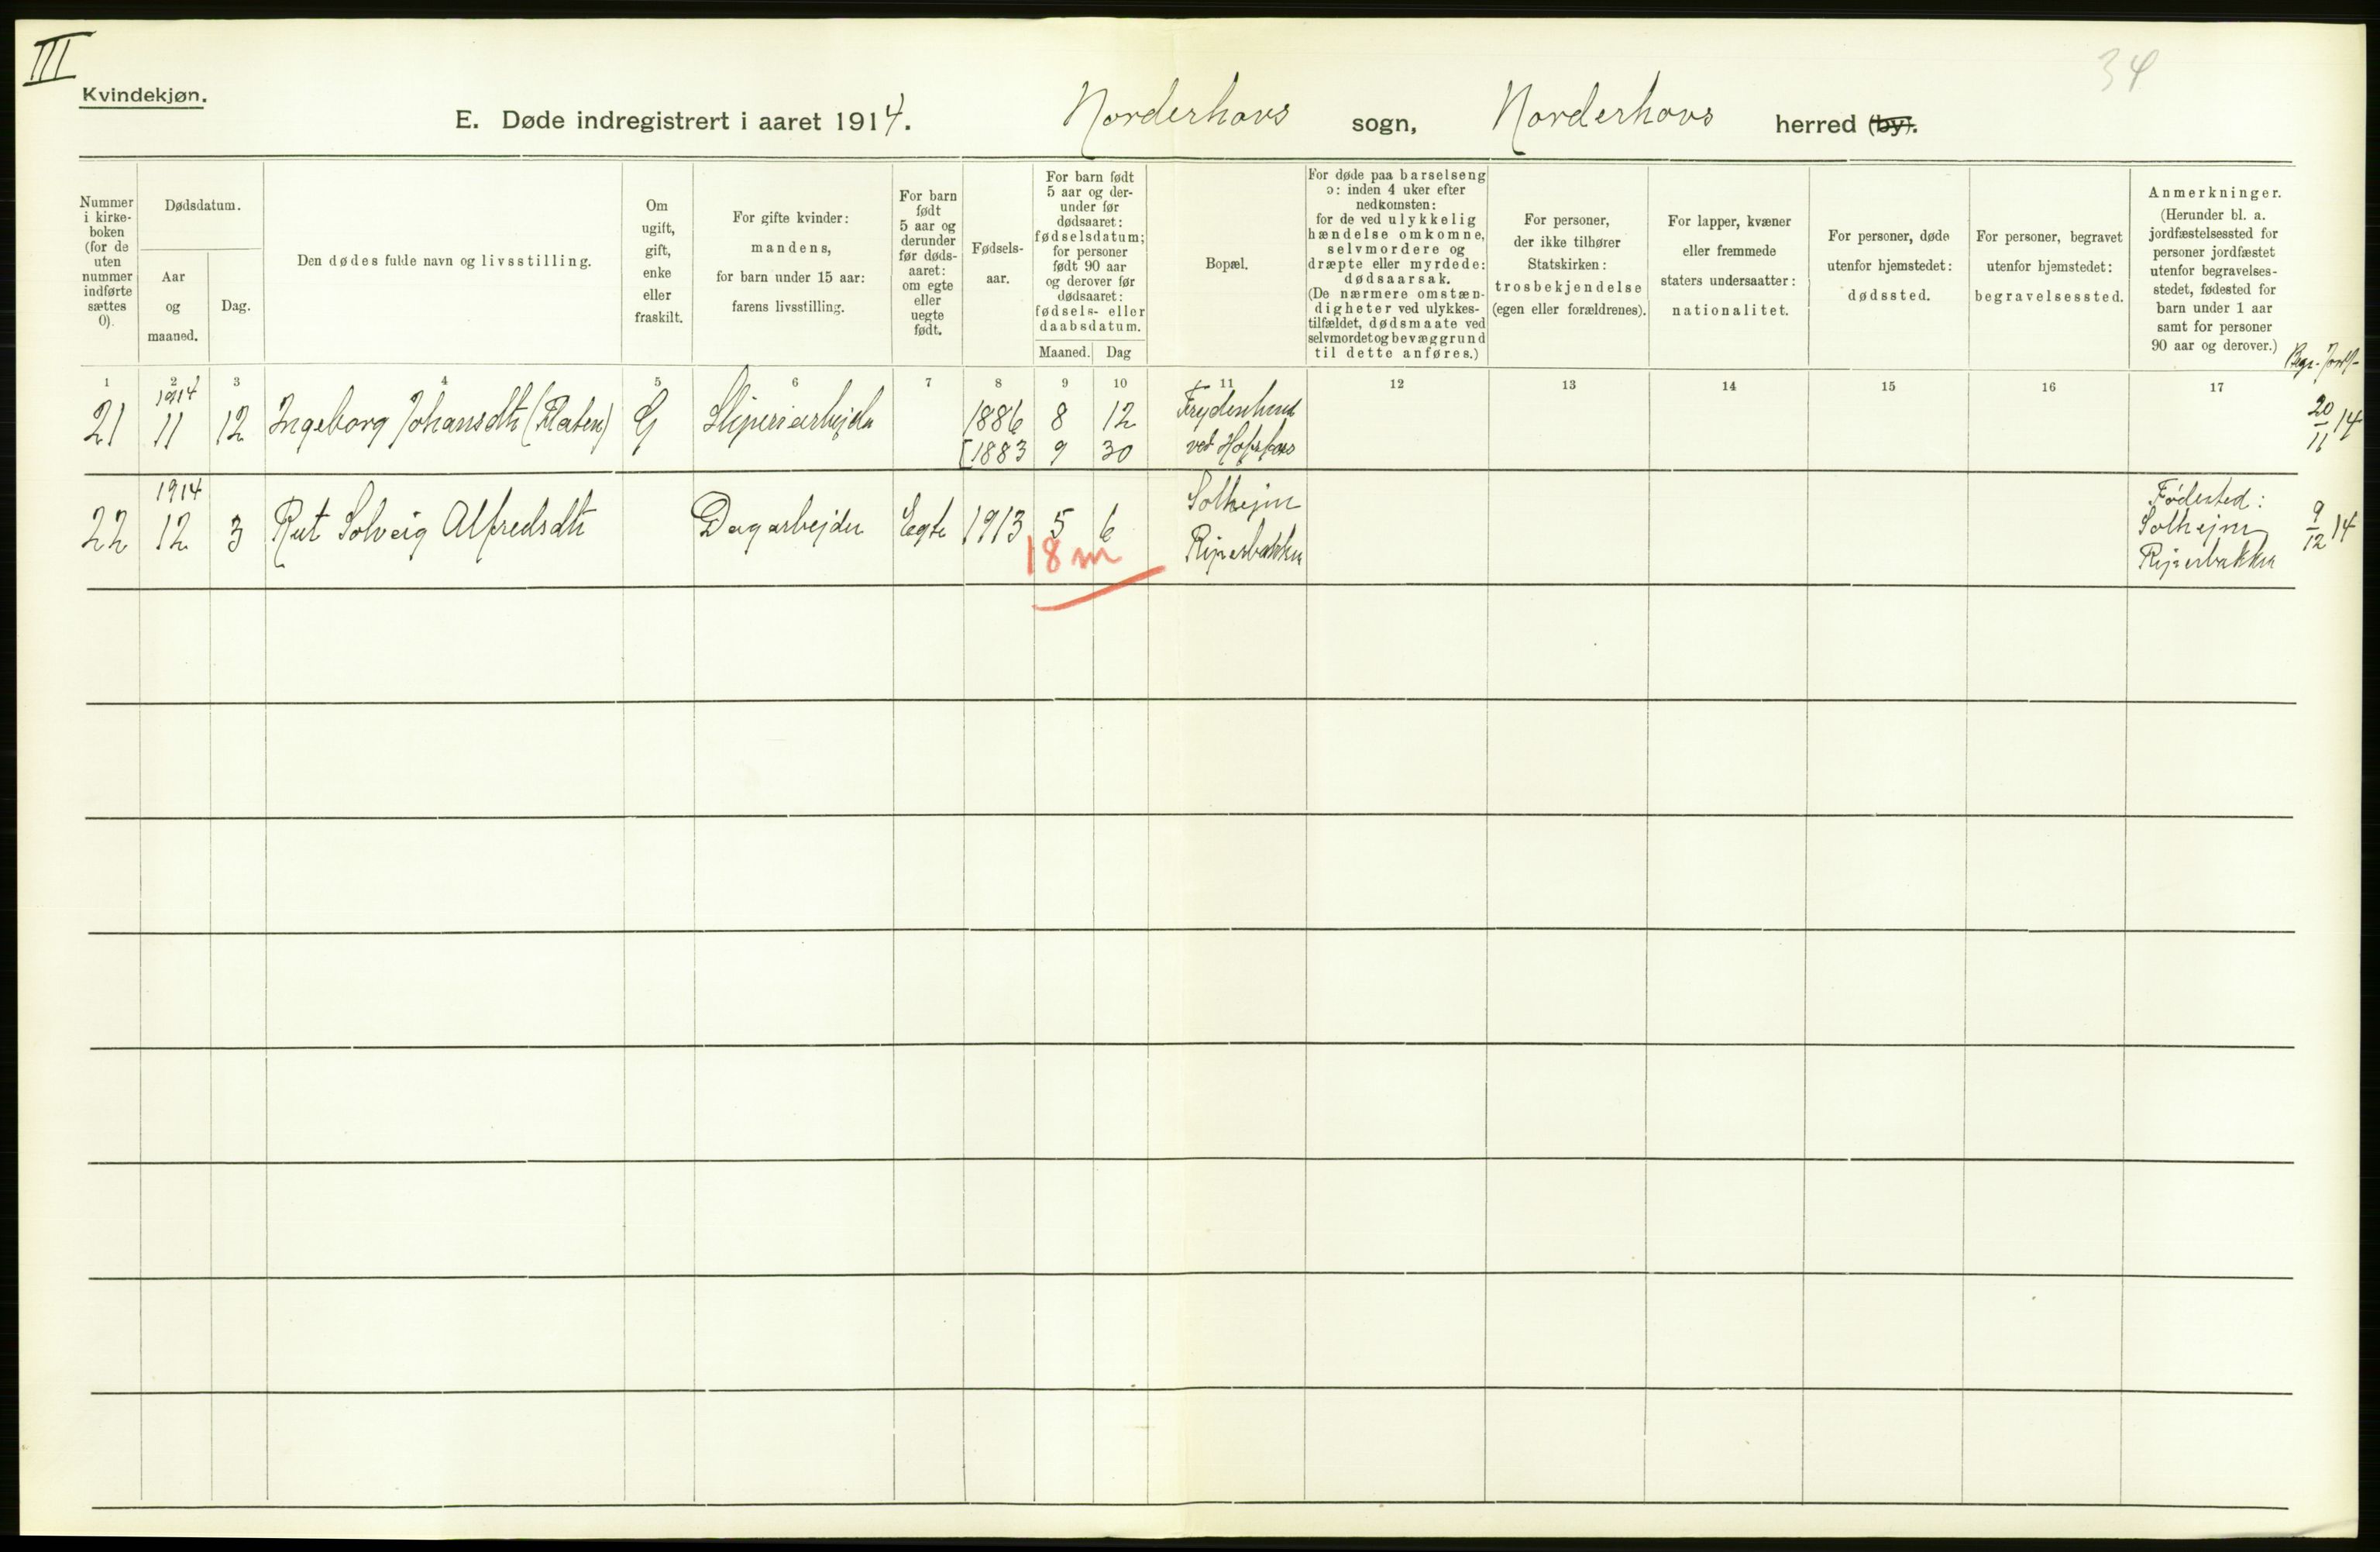 III
34
Kvindekjøn.
E. Døde indregistrert i aaret 1914. Norderhovs sogn, Norderhovs herred (by).
Nummer
i kirke-
boken
(for de
uten
nummer
indførte
sættes
0).
Dødsdatum.
Aar
og
maaned.
Dag.
Den dødes fulde navn og livsstilling.
Om
ugift,
gift,
enke
eller
fraskilt.
For gifte kvinder:
mandens,
for barn under 15 aar:
farens livsstilling.
For barn
født
5 aar og
derunder
før døds-
aaret:
om egte
eller
uegte
født.
Fødsels-
aar.
For barn født
5 aar og der-
under før
dødsaaret:
fødselsdatum;
for personer
født 90 aar
og derover før
dødsaaret:
fødsels- eller
daabsdatum.
Maaned. Dag
Bopæl.
For døde paa barselseng
ɔ: inden 4 uker efter
nedkomsten:
for de ved ulykkelig
hændelse omkomne,
selvmordere og
dræpte eller myrdede:
dødsaarsak.
(De nærmere omstæn-
digheter ved ulykkes-
tilfældet, dødsmaate ved
selvmordet og bevæggrund
til dette anføres.)
For personer,
der ikke tilhører
Statskirken:
trosbekjendelse
(egen eller forældrenes).
For lapper, kvæner
eller fremmede
staters undersaatter:
nationalitet.
For personer, døde
utenfor hjemstedet:
dødssted.
For personer, begravet
utenfor hjemstedet:
begravelsessted.
Anmerkninger.
(Herunder bl. a.
jordfæstelsessted for
personer jordfæstet
utenfor begravelses-
stedet, fødested for
barn under 1 aar
samt for personer
90 aar og derover.)
1 2 3 4 5 6 7 8 9 10 11 12 13 14 15 16 17
1914
21 11 12 Ingeborg Johansdtr (Platen) G Sliperiarbejder 1886 8 12 Frydenlund 20/11 14
[1883 9 30 ved Hofsfos
1914
22 12 3 Rut Solveig Alfredsdtr Dagarbejder Egte 1913 5 6 Solhejm
Ripserbakken
18 m
Fødested:
Solhejm
Ripserbakken
9/12 14